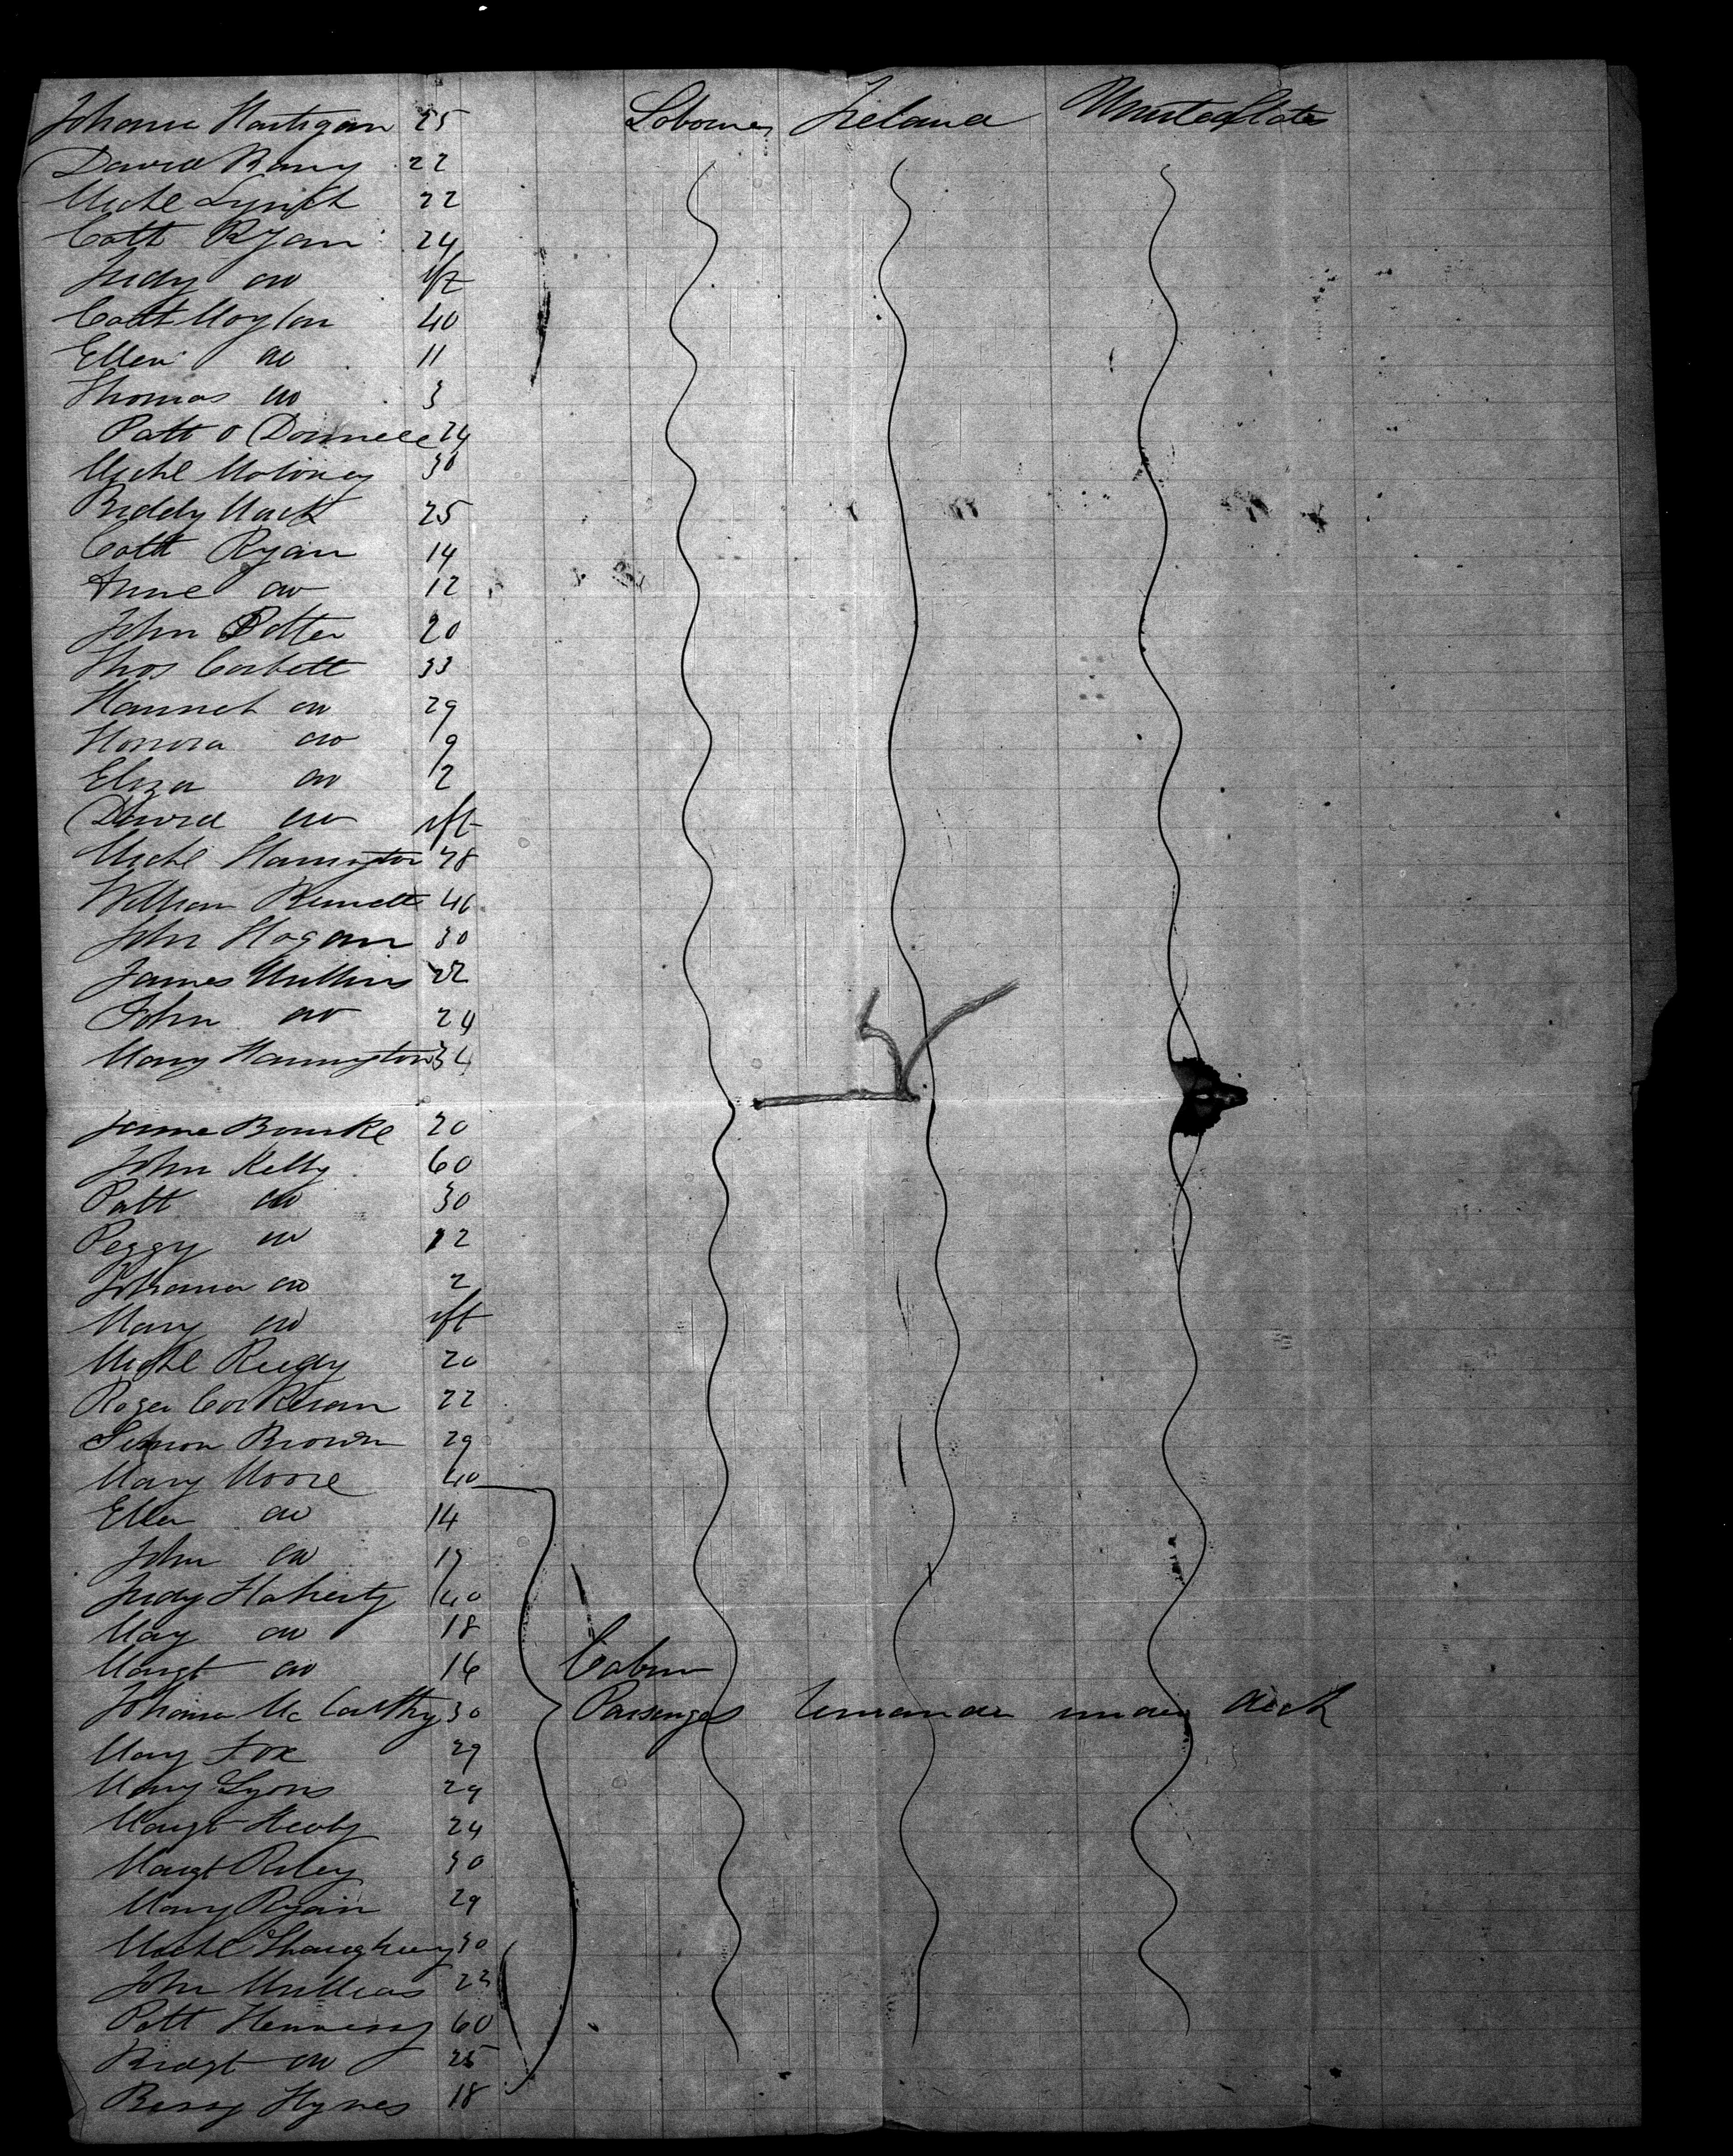 Johana Hartigan 25 Labourers Ireland United States
David Barry 22
Michl Lynch 22
Cath Ryan 24
Judy do
Cath Moylan 40
Ellen do 11
Thomas do 3
Patt O Donnell 24
Michl Moloney 30
Biddy Mack 25
Cath Ryan 14
Anne do 12
John Potter 20
Thos Corbett 33
Hannah do 29
Honora do 9
Eliza do 2
David do ift
Michl Harrington 28
William Bennett
John Hogan 30
James Mullins 22
John do 24
Mary Harrington 34
Jame Bourke 20
John Kelly 60
Patt do 30
Peggy do 12
Johana do 2
Mary do ift
Michl Reedy 20
Roger Corkeran 22
Simon Brown 29
Mary Moore 40
Ellen do 14
John do
Judy Flaherty 40
May do 18
Margt do 16 Cabin
Johana Mc Carthy 30 Passengers remainder under deck
Mary Fox 29
Mary Lyons 24
Margt Healy 24
Margt Riley 30
Mary Ryan 29
Michl Shaughnesy 30
John Mullins 23
Patt Hennessy 60
Bridgt do 25
Bessy Hynes 18